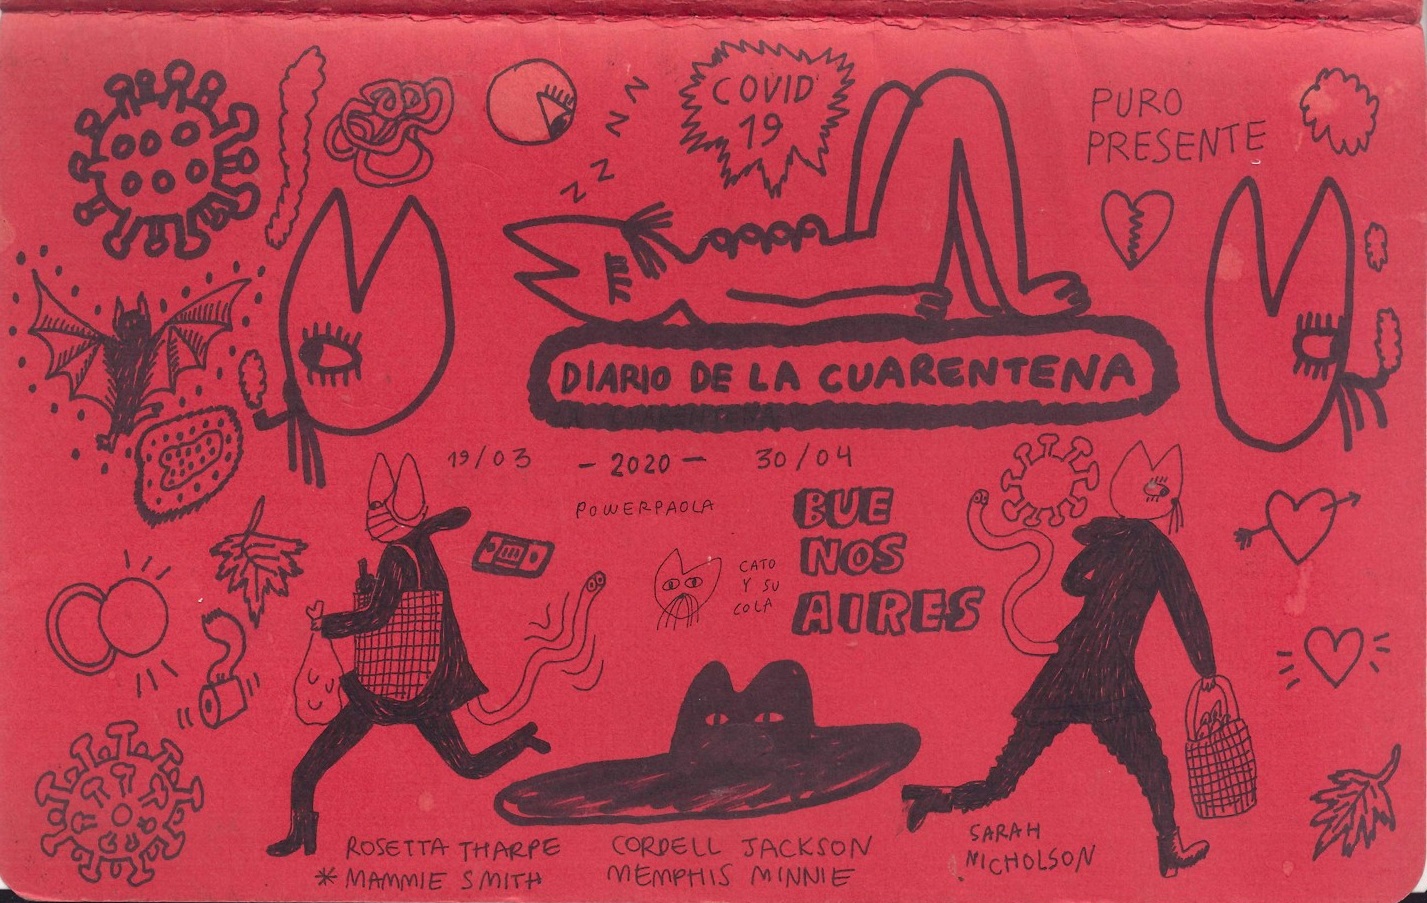 COVID
19
Z Z Z N N N
PURO
PRESENTE
DIARIO DE LA CUARENTENA
LA CUARENTENA
19/03 - 2020 - 30/04
POWERPAOLA
BUE
NOS
AIRES
CATO
Y SU
COLA
ROSETTA THARPE
* MAMMIE SMITH
CORDELL JACKSON
MEMPHIS MINNIE
SARAH
NICHOLSON